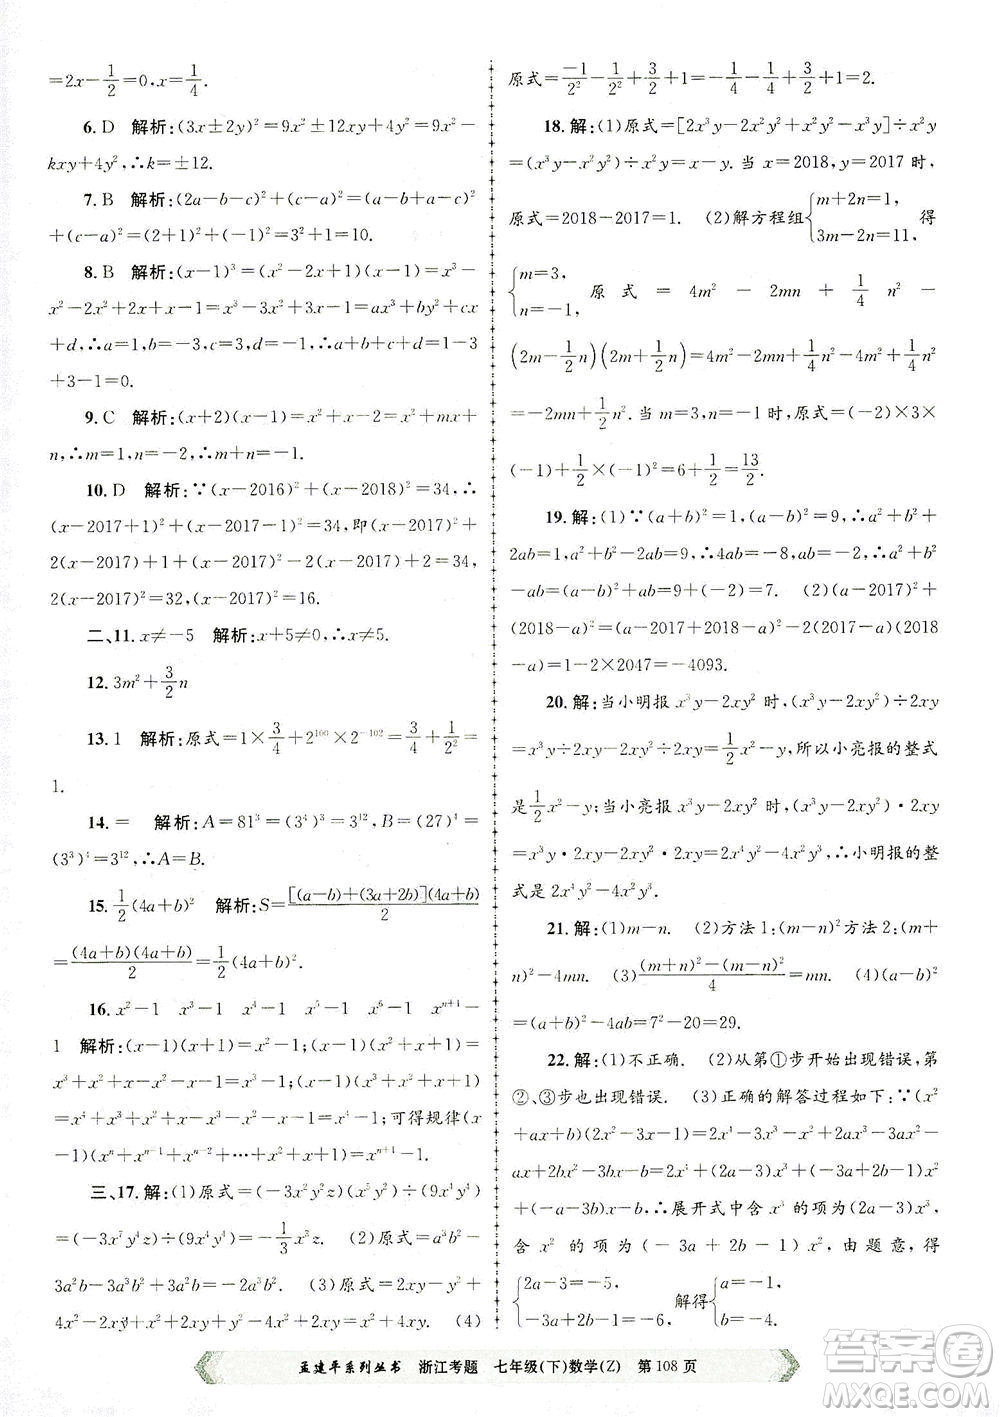 =2x-1/2=0,x=1/4.
6. D 解析:(3x±2y)²=9x²±12x+4y²=9x²-
kxy+4y²,∴k=±12.
7. B 解析:(2a-b-c)²+(c-a)²=(a-b+a-c)²
+(c-a)²=(2+1)²+1=3²+1=10.
8. B 解析:(x-1)³=(x²-2x+1)(x-1)=x³-
x²-2x²+2x+x-1=x³-3x²+3x-1=ax³+by²+cx
+d,∴a=1,b=-3,c=3,d=-1,∴a+b+c+d=1-3
+3-1=0.
9. C 解析:(x+2)(x-1)=x²+x-2=x²+mx+
n,∴m=1,n=-2,∴m+n=-1.
10. D 解析:∵(x-2016)²+(x-2018)²=34,∴
(x-2017+1)²+(x-2017-1)²=34,即(x-2017)²+
2(x-2017)+1+(x-2017)²-2(x-2017)+1=34,
2(x-2017)²=32,(x-2017)²=16.
二、11. x≠-5 解析:x+5≠0,∴x≠-5.
12. 3m²+3/2n
13. 1 解析:原式=1×3/4+2¹⁰⁰×2⁻¹⁰²=3/4+1/2²=
1.
14. = 解析:A=81³=(3⁴)³=3¹²,B=(27)⁴=
(3³)⁴=3¹²,∴A=B.
15. 1/2(4a+b)² 解析:S=[(a-b)+(3a+2b)](4a+b)/2
=(4a+b)(4a+b)/2=1/2(4a+b)².
16. x²-1 x³-1 x⁴-1 x⁵-1 x⁶-1 xⁿ⁺¹-
1 解析:(x-1)(x+1)=x²-1;(x-1)(x²+x+1)=
x³+x²+x-x²-x-1=x³-1;(x-1)(x³+x²+x+1)
=x⁴+x³+x²+x-x³-x²-x-1=x⁴-1;可得规律(x
-1)(xⁿ+xⁿ⁻¹+xⁿ⁻²+…+x²+x+1)=xⁿ⁺¹-1.
三、17. 解:(1)原式=(-3x²y⁴z)(x⁵y³)÷(9x⁴y⁴)
=(-3x⁷y⁷z)÷(9x⁴y⁴)=-1/3x³y³z. (2)原式=a³b²-
3a²b²-a³b²+3a²b=-3a²b²+3a²b. (3)原式=2xy-
4x²+4x²-2xy+4xy-y²=4xy-y². (4)
原式=-1/2²-1/2²+3/2+1=-1/2+3/2+1=2.
18. 解:(1)原式=[2x³y-2x²y²+x²y²-x³y]÷x²y
=(x³y-x²y²)÷x²y=x-y. 当 x=2018,y=2017 时,
原式=2018-2017=1. (2)解方程组{m+2n=1, 3m-2n=11, 得
{m=3, n=-1, 原式=4m²-2mn+1/4n²-
(2m-1/2n)(2m+1/2n)=4m²-2mn+1/4n²-4m²+1/4n²
=-2mn+1/2n². 当 m=3,n=-1 时,原式=(-2)×3×
(-1)+1/2×(-1)²=6+1/2=13/2.
19. 解:(1)∵(a+b)²=1,(a-b)²=9,∴a²+b²+
2ab=1,a²+b²-2ab=9,∴4ab=1-9=-8,∴a²+b²
-ab=(a-b)²+ab=9+(-2)=7. (2)(2017-a)²+
(2018-a)²=(2017-a-2018+a)²-2(2017-a)(2018
-a)=1-2×2047=-4093.
20. 解:当小明报 x³y-2xy² 时,(x³y-2xy²)÷2xy
=x³y÷2xy-2xy²÷2xy=1/2x²-y,所以小亮报的整式
是1/2x²-y;当小亮报 x³y-2xy² 时,(x³y-2xy²)·2xy
=x³y·2xy-2xy²·2xy=2x⁴y²-4x²y³,∴小明报的整
式是 2x⁴y²-4x²y³.
21. 解:(1)m-n. (2)方法 1:(m-n)²方法 2:(m+
n)²-4mn. (3)(m+n)²-(m-n)²/4=mn. (4)(a-b)²
=(a+b)²-4ab=7²-20=29.
22. 解:(1)不正确. (2)从第①步开始出现错误,第
②、③步也出现错误. (3)正确的解答过程如下:∵(x²
+ax+b)(2x²-3x-1)=2x⁴-3x³-x²+2ax³-3ax²
-ax+2bx²-3bx-b=2x⁴+(2a-3)x³+(-3a+2b-
1)x²+(-a-3b)x-b,∴展开式中含 x³ 的项为(2a-3)x³,
含 x² 的项为(-3a+2b-1)x²,由题意,得
{2a-3=-5, -3a+2b-1=-6, 解得{a=-1, b=-4.
孟建平系列丛书 浙江考题 七年级(下)数学(Z) 第 108 页
答案圈
MXQE.COM